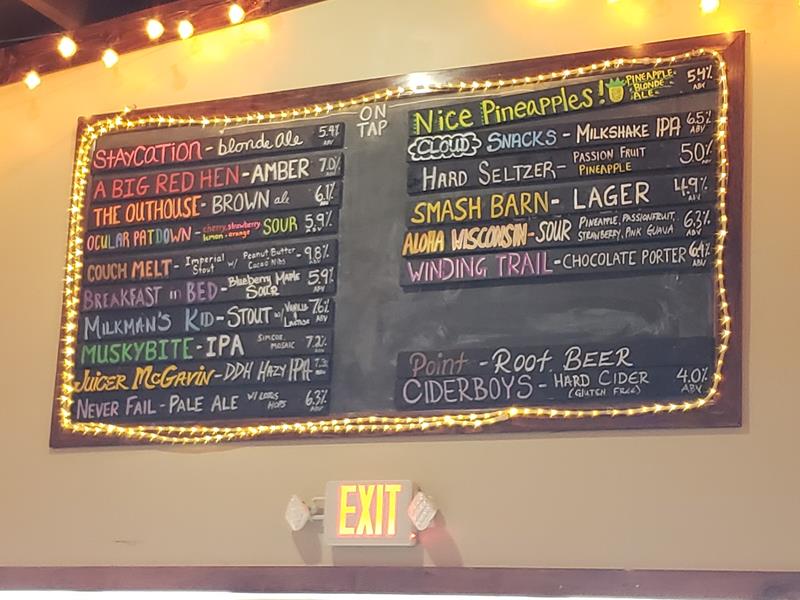 ON TAP
STAYCATION - blonde ale 5.4% ABV
A BIG RED HEN - AMBER 7.0% ABV
THE OUTHOUSE - BROWN ale 6.1% ABV
OCULAR PATDOWN - cherry, strawberry lemon, orange SOUR 5.9% ABV
COUCH MELT - Imperial Stout w/ Peanut Butter Cacao Nibs 9.8% ABV
BREAKFAST in BED - Blueberry Maple SOUR 5.9% ABV
MILKMAN'S KID - STOUT w/ Vanilla & Lactose 7.6% ABV
MUSKYBITE - IPA SIMCOE, MOSAIC 7.2% ABV
JUICER McGAVIN - DDH HAZY IPA 7.3%
NEVER FAIL - PALE ALE HOPS 6.3% ABV
NICE PINEAPPLES! PINEAPPLE BLONDE ALE 5.4% ABV
CLOUD SNACKS - MILKSHAKE IPA 6.5% ABV
HARD SELTZER - PASSION FRUIT PINEAPPLE 5.0% ABV
SMASH BARN - LAGER 4.9% ABV
ALOHA WISCONSIN - SOUR PINEAPPLE, PASSIONFRUIT, STRAWBERRY, PINK GUAVA 6.3% ABV
WINDING TRAIL - CHOCOLATE PORTER 6.4% ABV
Point - ROOT BEER
CIDERBOYS - HARD CIDER (GLUTEN FREE) 4.0% ABV
EXIT